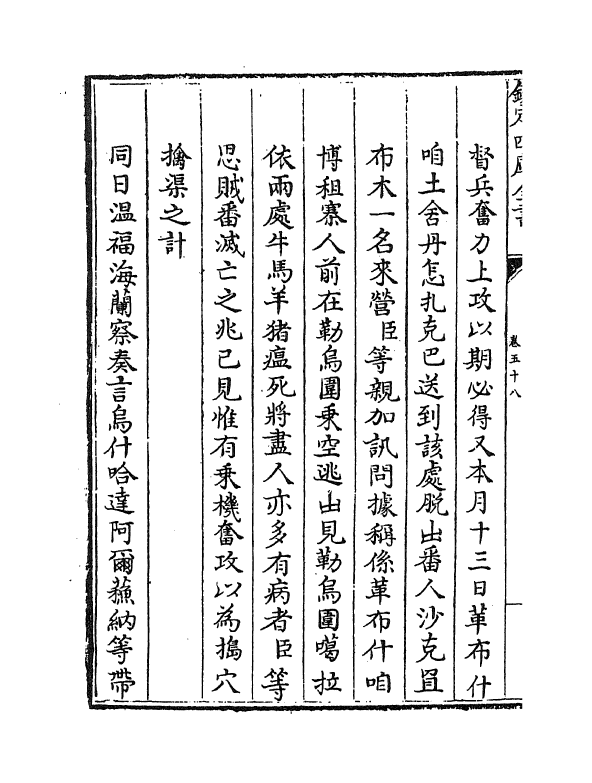 欽定四庫全書
卷五十八
督兵奮力上攻以期必得又本月十三日革布什
咱土舍丹怎扎克巴送到該處脫出番人沙克亶
布木一名來營臣等親加訊問據稱係革布什咱
博租寨人前在勒烏圍乘空逃出見勒烏圍噶拉
依兩處牛馬羊猪瘟死將盡人亦多有病者臣等
思賊番滅亡之兆已見惟有乘機奮攻以為搗穴
擒渠之計
同日温福海蘭察奏言烏什哈達阿爾蘓納等帶